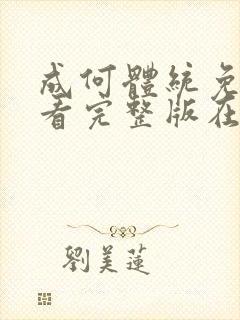 成何體統免
看完整版在
劉美蓮